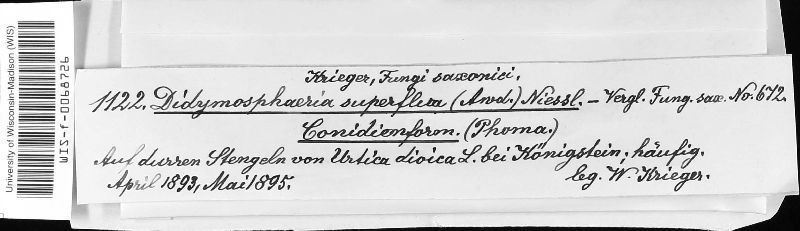 University of Wisconsin-Madison (WIS)
WIS-f-0068726
Krieger, Fungi saxonici.
1122. Didymosphaeria superflua (Awd.) Niessl. – Vergl. Fung. sax. No. 672.
Conidienform. (Phoma.)
Auf durren Stengeln von Urtica dioica L. bei Königstein; häufig.
April 1893, Mai 1895. leg. W. Krieger.